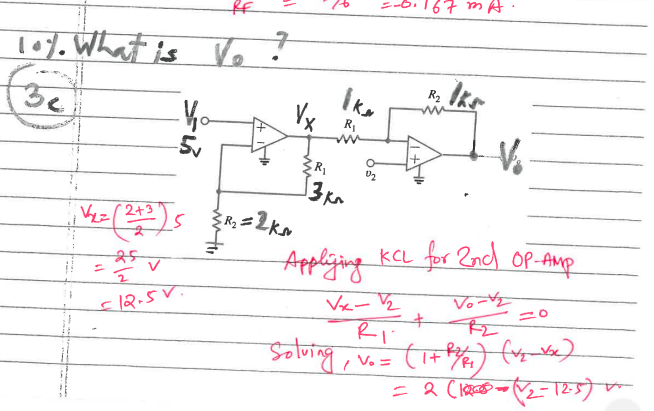 RF = % = -0.167 mA.
10%. What is Vo ?
3c
V1
5v
Vx
1kΩ
R1
R2 1kΩ
+
-
-
+
R1
3kΩ
υ2
Vo
R2 = 2kΩ
Vx = (2+3/2) 5
= 25/2 V
= 12.5 V.
Applying KCL for 2nd OP-AMP
Vx - V2/R1 + Vo - V2/R2 = 0
Solving, Vo = (1 + R2/R1) (V2 - Vx)
= 2 (V2 - 12.5) V.